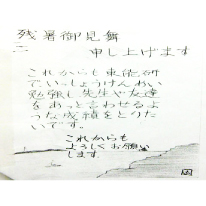 残暑御見舞
申し上げます
これからし東能研
でいっしょうけんめい
勉強し先生や友達
をあっと言わせるよ
うな成績をとりた
いです。
これからも
よろしくお願い
します。